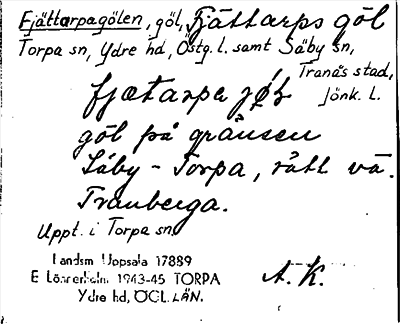 Fjättarpagölen, göl, Fjättarps göl
Torpa sn, Ydre hd, Östg. l. samt Säby sn,
Tranås stad,
Jönk. l.
fjætarpa
göl på gränsen
Säby - Torpa, rätt vä.
Tranberga.
Uppt. i Torpa sn.
Landsm Uppsala 17889
E Lönnerholm 1943-45 TORPA
Ydre hd, ÖGL. LÄN.
A. K.